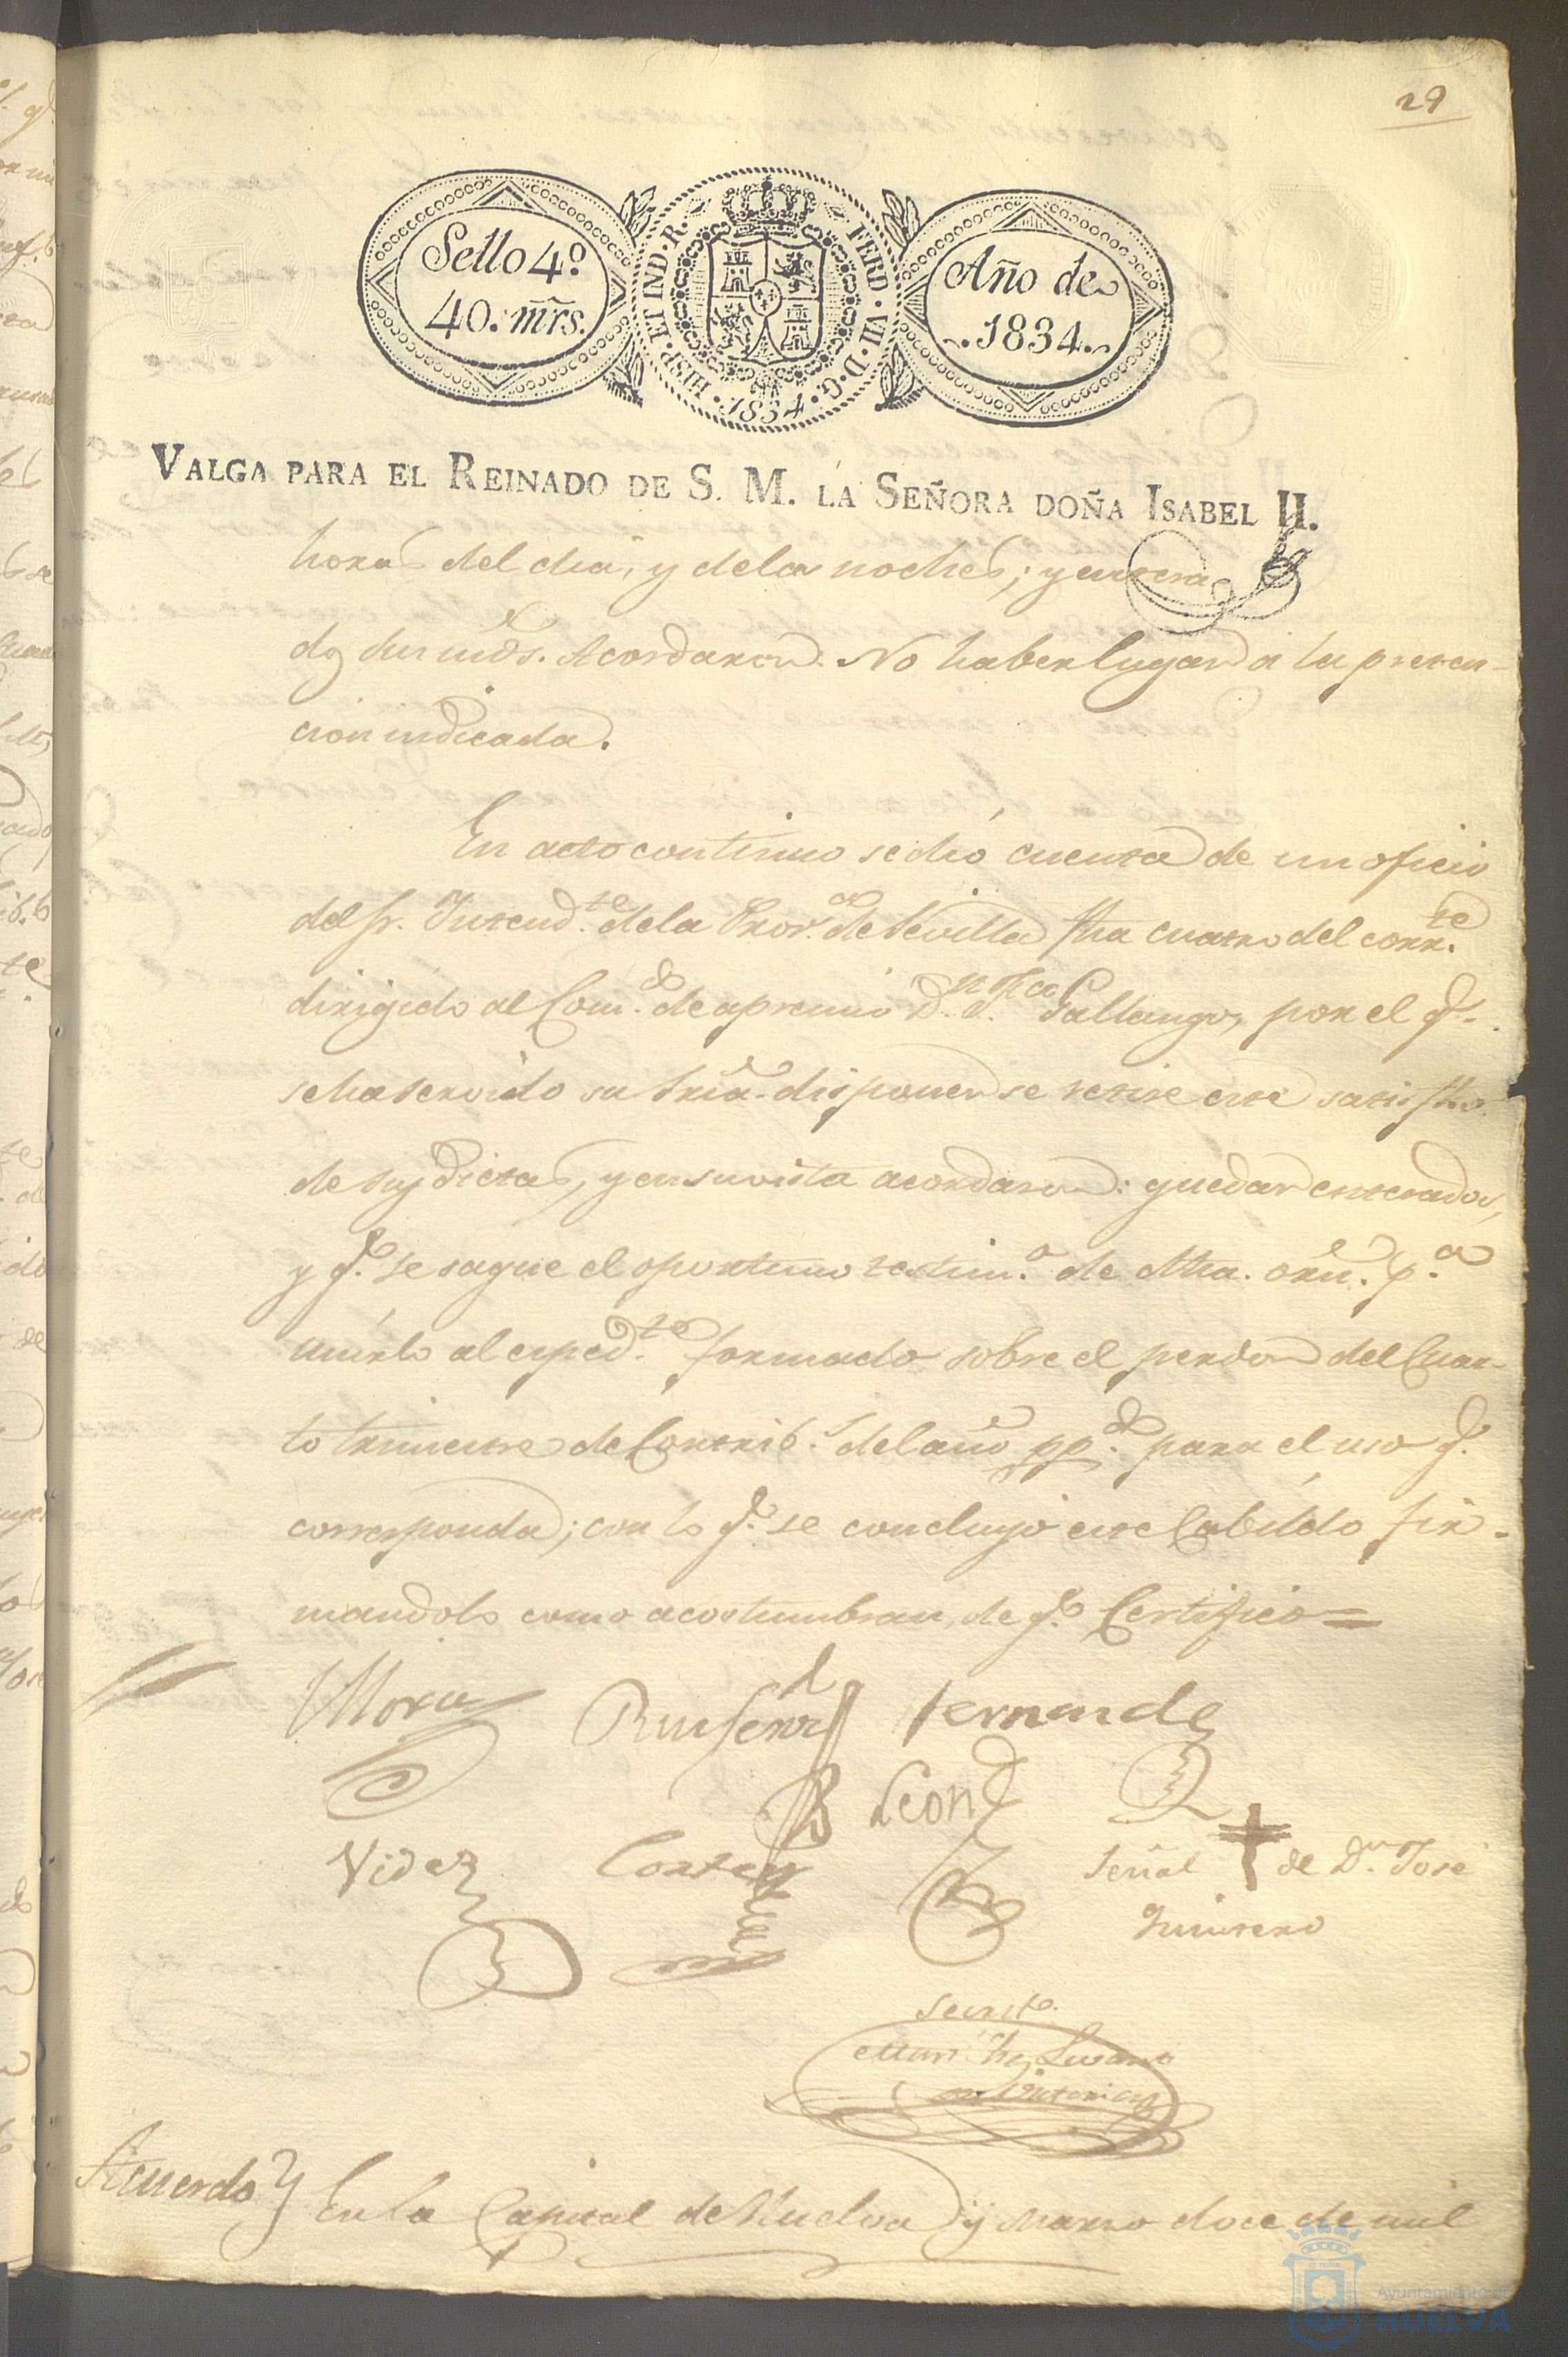 29
Sello 4º
40. mrs.
HISP. ET IND. R. FERD. VII. D. G. 1834.
Año de
1834.
VALGA PARA EL REINADO DE S. M. LA SEÑORA DOÑA ISABEL II.
horas del dia, y de la noches; y entera
dos sus mds. Acordaron: No haber lugar á la preten-
cion indicada.
En acto continuo se dió cuenta de un oficio
del Sr. Intend.te de la Prov.a de Sevilla fha cuatro del corr.te
dirigido al Com.do de apremio D.n Fco Gallango, por el q.
se ha servido su Sria. disponer se retire este satisfho.
de sus dietas, y en su vista acordaron: quedar enterados,
y q.e se saque el oportuno testim.o de dha. orn. p.a
unirlo al exped.te formado sobre el perdon del Cuar-
to trimestre de Contrib.s del año pp.do para el uso q.
corresponda; con lo q.e se concluyó este Cabildo fir-
mandolo como acostumbran, de q.e Certifico=
Mora Fernandez
Leon
Videz Cortes Señal de Dn. José
Quintero
Secret.o
Acuerdo En la Capital de Huelva y Marzo doce de mil
Ayuntamiento de
HUELVA